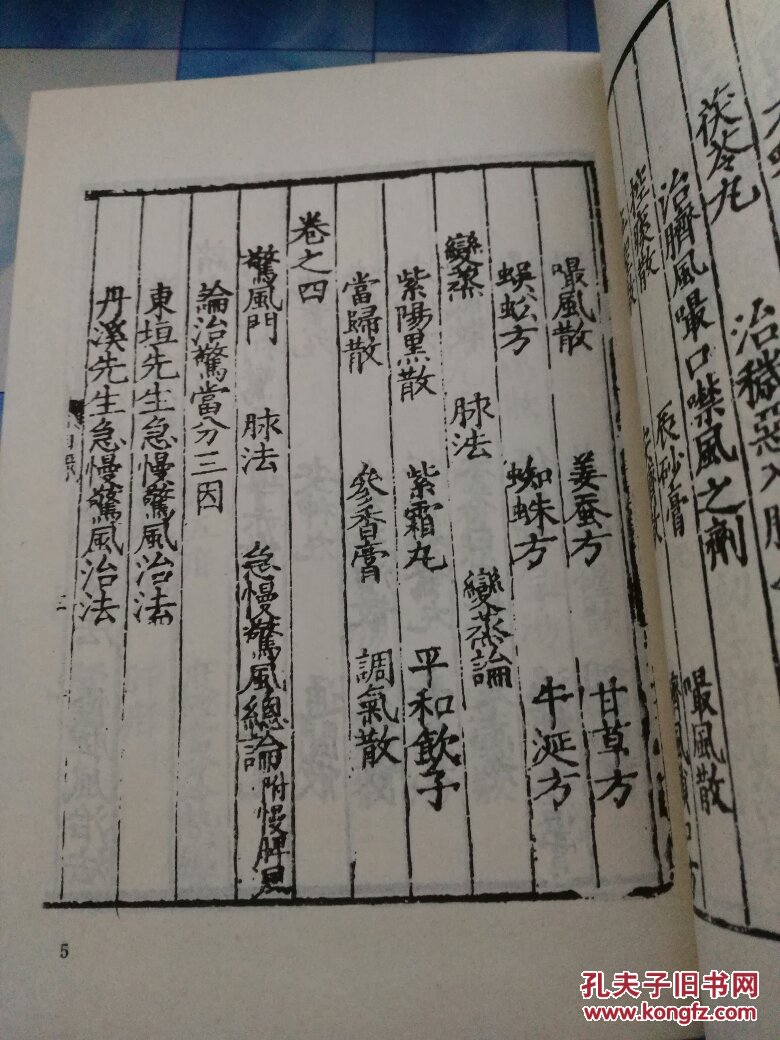 茯苓丸
治臍風最口噤風之劑
辰砂膏
嘬風散
嘬風散　姜蚕方　甘草方
蜈蚣方　蜘蛛方　牛涎方
變蒸　脉法　變蒸論
紫陽黑散　紫霜丸　平和飲子
當歸散　參香膏　調氣散
卷之四
驚風門　脉法　急慢驚風總論附慢脾風
論治驚當分三因
東垣先生急慢驚風治法
丹溪先生急慢驚風治法
5
孔夫子旧书网
www.kongfz.com